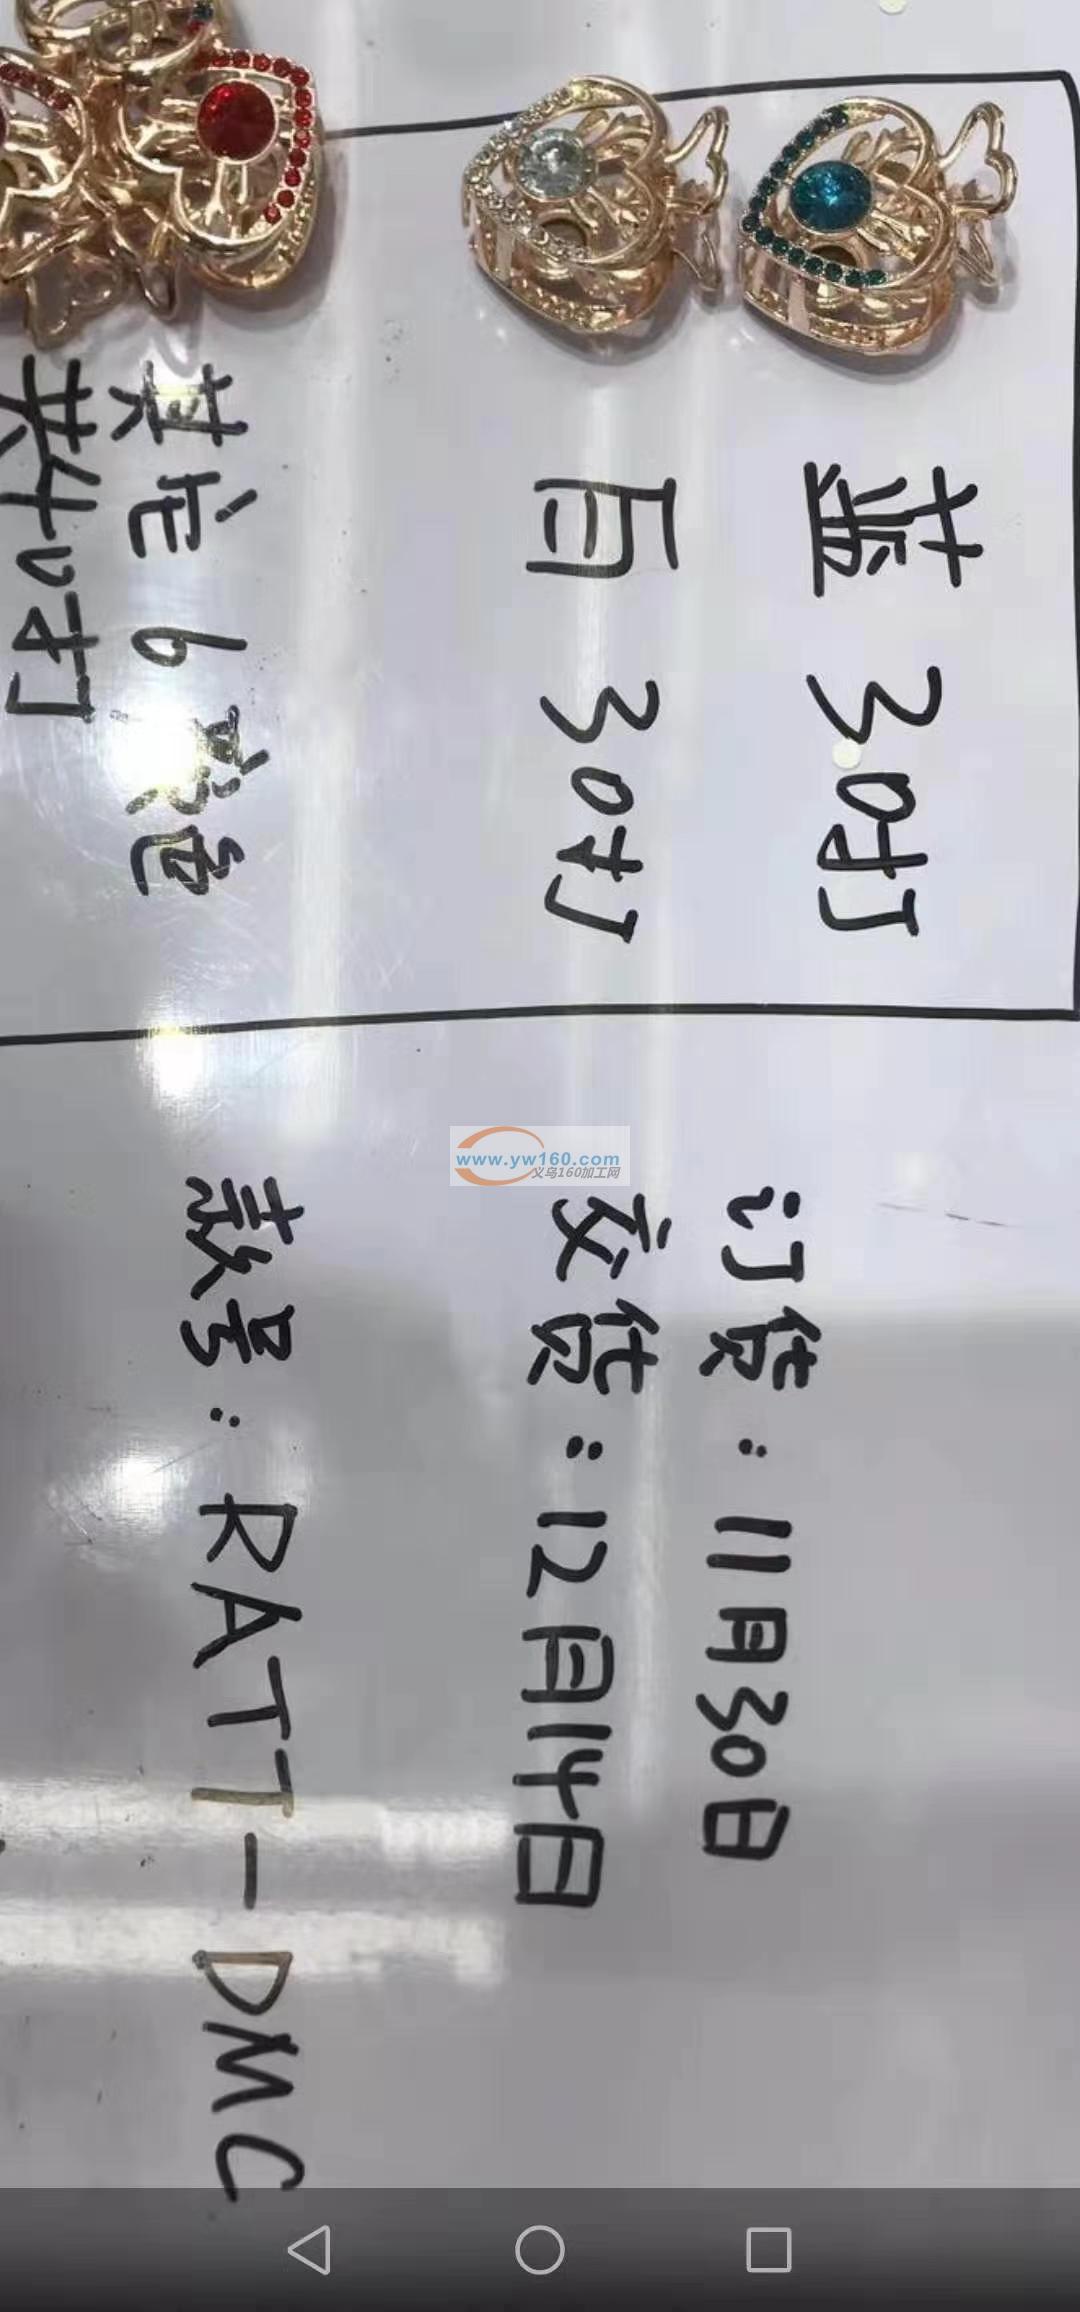 蓝 30打
白 30打
其它6客色
共化打
订货:11月30日
交货:12月14日
款号:RATT-DMC
www.yw160.com
义乌160加工网